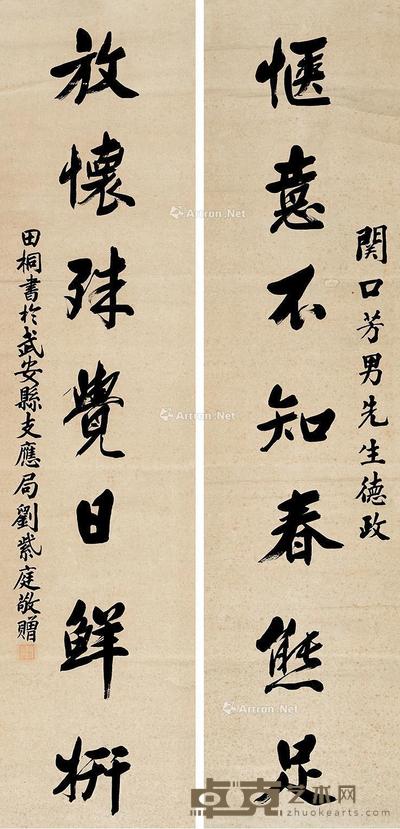 関口芳男先生德政
惬意不知春態足
放懷殊覺日鮮妍
田桐書於武安縣支應局劉紫庭敬贈
Artron.Net
Artron.Net
Artron.Net
Artron.Net
卓克艺术网
zhuokearts.com